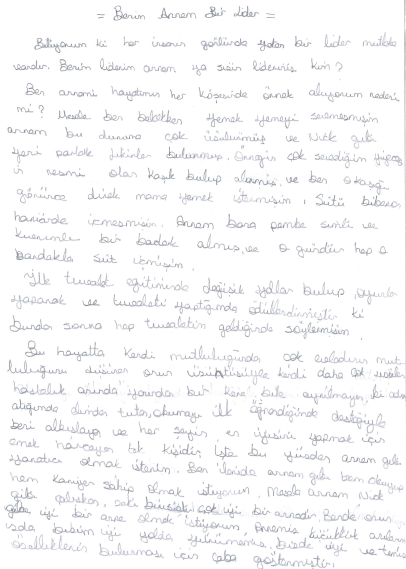 = Benim Annem Bir Lider =
Biliyorum ki her insanın gönlünde yatan bir lider mutlaka
vardır. Benim liderim annem ya sizin lideriniz kim?
Ben annemi hayatımın her köşesinde örnek alıyorum nedeni
mi? Mesela ben bebekken yemek yemeyi sevmezmişim
annem bu duruma çok üzülürmüş ve Nick gibi
yeni parlak fikirler bulunmuş. Örneğin çok sevdiğim
resmi olan kaşık bulup almış, ve ben o kaşığı
görünce direk mama yemek istermişim. Sütü biberon
haricinde içmezmişim. Annem bana pembe simli ve
bir bardak almış, ve o gündür hep o
bardakla süt içmişim.
İlk tuvalet eğitiminde değişik yollar bulup, oyunla
yaparak ve tuvaleti yaptığımda ödüllendirmiştir ki
bundan sonra hep tuvaletim geldiğinde söylemişim.
Bu hayatta kendi mutluluğundan çok evladının mut-
luluğunu düşünen onun üzüntüsüyle kendi daha çok üzülen
hastalık anında yanından bir kere bile ayrılmayan, ilk adım
attığımda elimden tutan, okumayı ilk öğrendiğimde desteğiyle
beni alkışlayan ve her şeyin en iyisini yapmak için
emek harcayan tek kişidir. İşte bu yüzden annem gibi
yaratıcı olmak isterim. Ben ileride annem gibi hem okuyup
hem kariyer sahibi olmak istiyorum. Mesela annem Nick
gibi çalışkan, zeki çok iyi bir annedir. Bende onun
gibi iyi bir anne olmak istiyorum. Annemiz küçüklük anıların
bizim iyi yolda yürümemiz, bizde iyi ve temiz
özelliklerin bulunması için çaba göstermiştir.